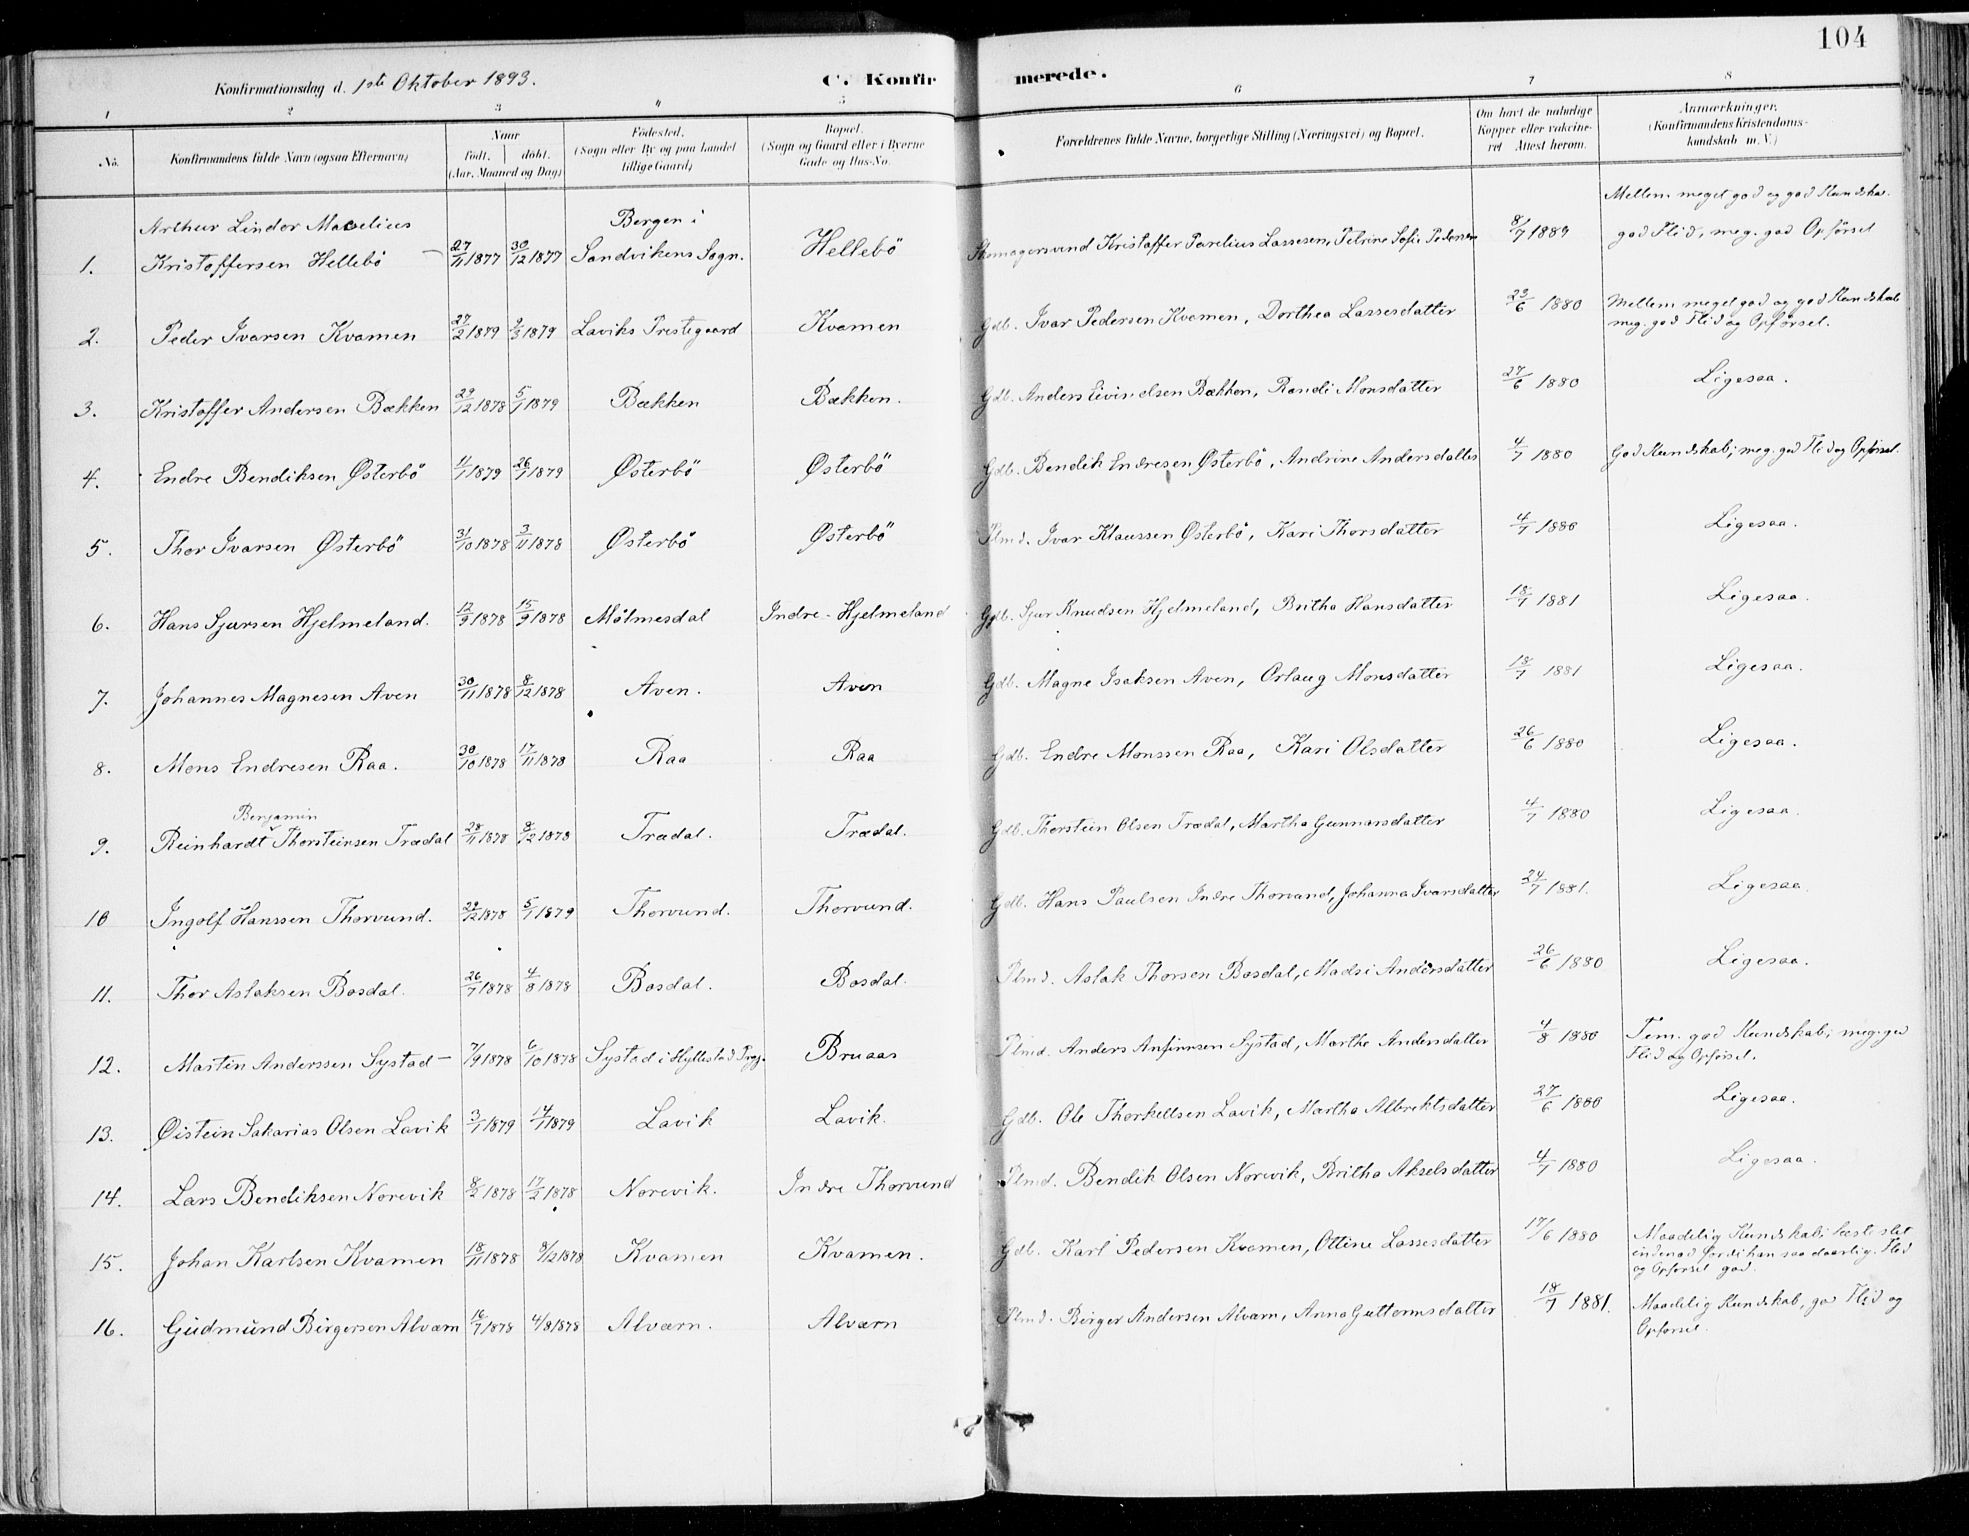 104
Konfirmationsdag d. 1ste Oktober 1893.
C. Konfirmerede.
1 2 3 4 5 6 7 8
No. Konfirmandens fulde Navn (ogsaa Efternavn) Naar født, døbt. (Aar, Maaned og Dag) Fødested. (Sogn eller By og paa Landet tillige Gaard) Bopæl. (Sogn og Gaard eller i Byerne Gade og Hus-No. Forældrenes fulde Navne, borgerlige Stilling (Næringsvei) og Bopæl. Om havt de naturlige Kopper eller vaccineret Attest herom. Anmærkninger, (Konfirmandens Kristendomskundskab m. V.)
1. Arthur Lindor Kristoffersen Hellebö 27/11 1877 30/12 1877 Bergen i Sandvikens Sogn. Hellebö Kristoffer Parelius Lassesen, Petrine Sofie 8/7 1889 Mellem meget god og god Kundskab. god Flid, meg. god Opförsel
2. Peder Ivarsen Kvamen 27/2 1879 9/3 1879 Laviks Prestegaard Kvamen Gdb. Ivar Pedersen Kvamen, Dorthea Lassesdatter 23/6 1880 Mellem meget god og god Kundskab meg. god Flid og Opförsel.
3. Kristoffer Andersen Bækken 29/12 1878 5/1 1879 Bækken Bækken. Gdb. Anders Eivindsen Bækken, Randi Monsdatter 27/6 1880 Ligesaa.
4. Endre Bendiksen Østerbö 4/1 1879 26/1 1879 Østerbö Østerbö Gdb. Bendik Endresen Østerbö, Andrine Andersdatter 4/7 1880 God Kundskab; meg. god Flid og Opförsel.
5. Thor Ivarsen Østerbö 31/10 1878 3/11 1878 Østerbö Østerbö Plmd. Ivar Klaussen Østerbö, Kari Thorsdatter 4/7 1880 Ligesaa.
6. Hans Sjursen Hjelmeland. 12/9 1878 15/9 1878 Mölmesdal Indre-Hjelmeland Gdb. Sjur Knudsen Hjelmeland, Britha Hansdatter 18/7 1881 Ligesaa.
7. Johannes Magnesen Aven 30/11 1878 8/12 1878 Aven. Aven Gdb. Magne Isaksen Aven, Orlaug Monsdatter 18/7 1881 Ligesaa.
8. Mons Endresen Raa. 30/10 1878 17/11 1878 Raa Raa Gdb. Endre Monssen Raa, Kari Olsdatter 26/6 1880 Ligesaa.
9. Reinhardt Benjamin Thorsteinsen Trædal 28/11 1878 8/12 1878 Trædal. Trædal. Gdb. Thorstein Olsen Trædal, Martha Gunnarsdatter 4/7 1880 Ligesaa.
10 Ingolf Hanssen Thorvund. 29/12 1878 5/1 1879 Thorvund. Thorvund. Gdb. Hans Paulsen Indre Thorvund, Johanna Ivarsdatter 24/7 1881. Ligesaa
11. Thor Aslaksen Bosdal. 26/7 1878 4/8 1878 Bosdal. Bosdal. Plmd. Aslak Thorsen Bosdal, Madsi Andersdatter 26/6 1880 Ligesaa.
12. Martin Anderssen Systad 7/9 1878 6/10 1878 Systad i Hyllestad Prgj. Bruaas Plmd. Anders Anfinnsen Systad, Marthe Andersdatter 4/8 1880 Tem. god Kundskab; meg. god Flid og Opförsel.
13. Øistein Sakarias Olsen Lavik 3/1 1879 17/1 1879 Lavik Lavik. Gdb. Ole Thorkellsen Lavik, Martha Albrektsdatter 27/6 1880 Ligesaa.
14. Lars Bendiksen Norevik 8/2 1878 17/2 1878 Norevik. Indre Thorvund Plmd. Bendik Olsen Norevik, Britha Akselsdatter 4/7 1880 Ligesaa.
15. Johan Karlsen Kvamen 18/11 1878 8/12 1878 Kvamen Kvamen. Gdb. Karl Pedersen Kvamen, Ottine Lassesdatter 17/6 1880 Maadelig Kundskab; læste slet indenad fordi han saa daarlig. Flid og Opförsel god.
16. Gudmund Birgersen Alværn 16/7 1878 4/8 1878 Alværn. Alværn Plmd. Birger Andersen Alværn, Anna Guttormsdatter 18/7 1881. Maadelig Kundskab, god Flid og Opförsel.